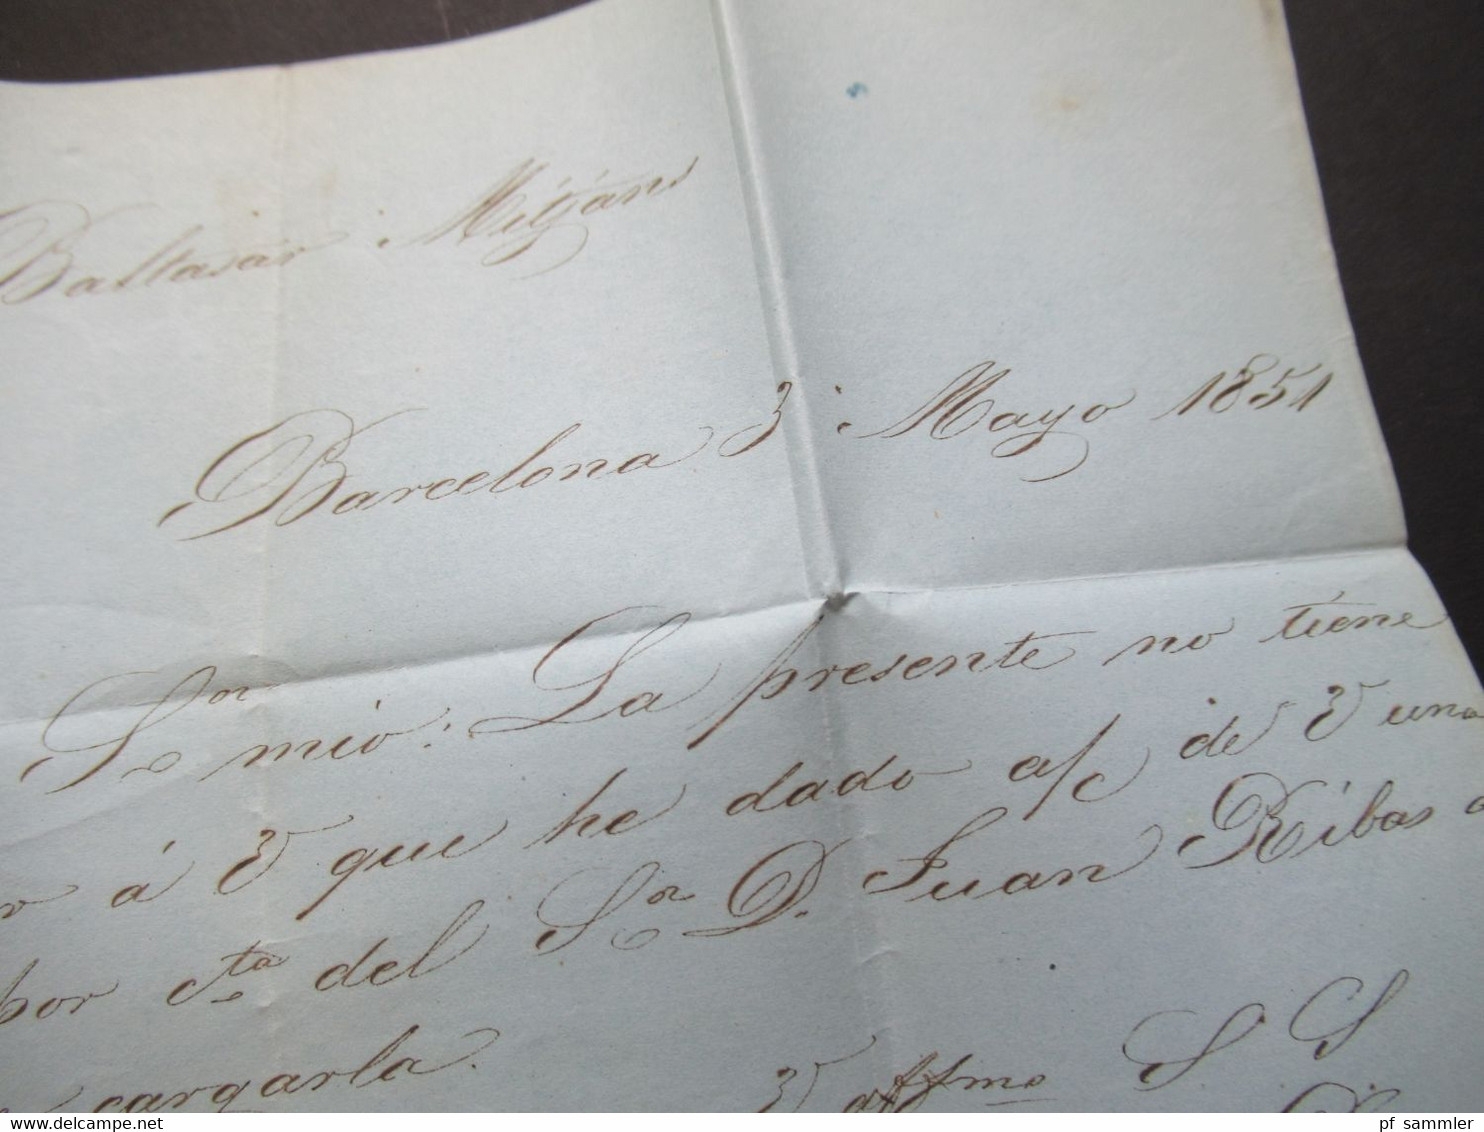 Baltasár Mitjáns
Barcelona 3 Mayo 1851
Sor mio: La presente no tiene
á V que he dado a/c de V una
por cta del Sor D. Juan Ribas
cargarla.
V affmo S S
pf sammler